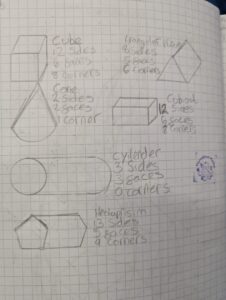 Cube
12 Sides
6 faces
8 corners
Triangular
8 Sides
5 faces
6 corners
Cone
2 Sides
2 faces
1 corner
Cuboid
12 Sides
6 faces
8 corners
Cylorder
3 Sides
3 faces
0 corners
13 Sides
5 faces
9 corners